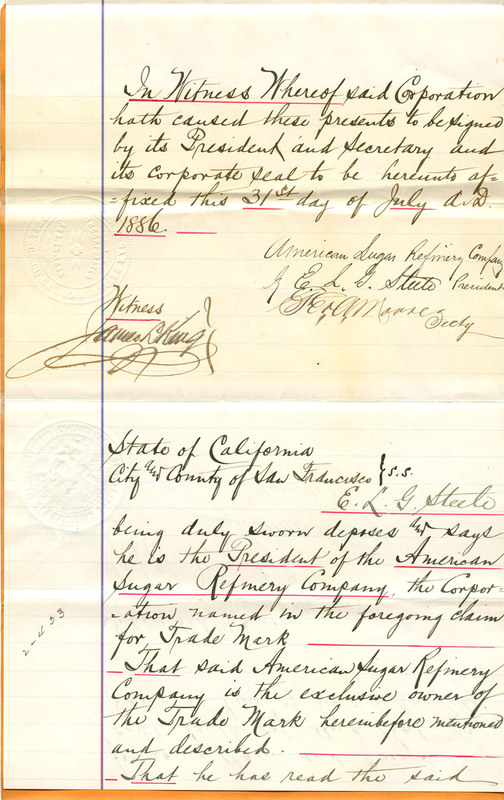 In Witness Whereof said Corporation
hath caused these presents to be signed
by its President and Secretary and
its corporate seal to be hereunto af=
=fixed this 31st day of July A.D.
1886.
American Sugar Refinery Company
by E. L. G. Steele President
Moore Secty
Witness
James R King
State of California
City and County of San Francisco } S.S.
E. L. G. Steele
being duly sworn deposes and says
he is the President of the American
Sugar Refinery Company, the Corpor=
=ation named in the foregoing claim
for Trade Mark
That said American Sugar Refinery
Company is the exclusive owner of
the Trade Mark hereinbefore mentioned
and described.
That he has read the said